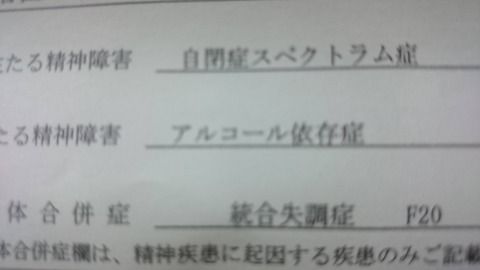 たる精神障害 自閉症スペクトラム症
たる精神障害 アルコール依存症
体合併症 統合失調症 F20
体合併症欄は、精神疾患に起因する疾患のみご記載